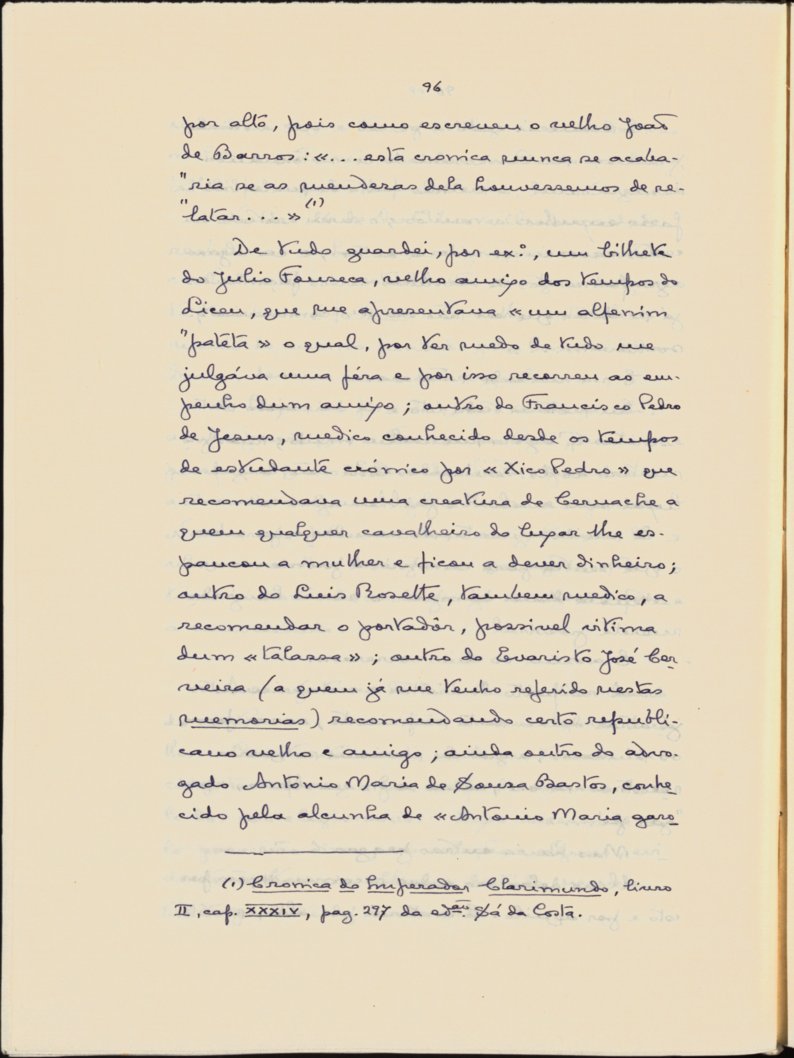 96
por alto, pois como escreveu o velho João
de Barros: «... esta cronica nunca se acaba-
"ria se as meuderas dela houvessemos de re-
"latar...» (1)
De tudo guardei, por ex.º, um bilhete
do Julio Fonseca, velho amigo dos tempos do
Liceu, que me apresentava «um alfenim
"pateta» o qual, por ter medo de tudo me
julgáva uma féra e por isso recorreu ao em-
penho dum amigo; outro do Francisco Pedro
de Jesus, medico conhecido desde os tempos
de estudante crónico por «Xico Pedro» que
recomendava uma creatura de Cernache a
quem qualquer cavalheiro do lugar lhe es-
pancou a mulher e ficou a dever dinheiro;
outro do Luis Rosette, tambem medico, a
recomendar o portadôr, possivel vitima
dum «talassa»; outro do Evaristo José Cer-
veira (a quem já me tenho referido nestas
memorias) recomendando certo republi-
cano velho e amigo; ainda outro do advo-
gado Antonio Maria de Sousa Bastos, conhe-
cido pela alcunha de «Antonio Maria garo-
(1) Cronica do Imperador Clarimundo, livro
II, cap. XXXIV, pag. 297 da edªᵘ. Sá da Costa.